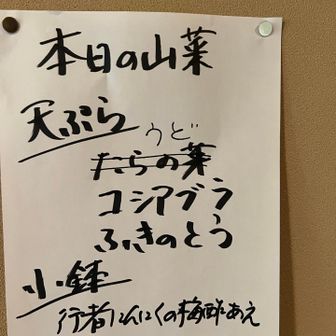 本日の山菜
天ぷら
うど
たらの葉
コシアブラ
ふきのとう
小鉢
行者にんにくの梅酢あえ